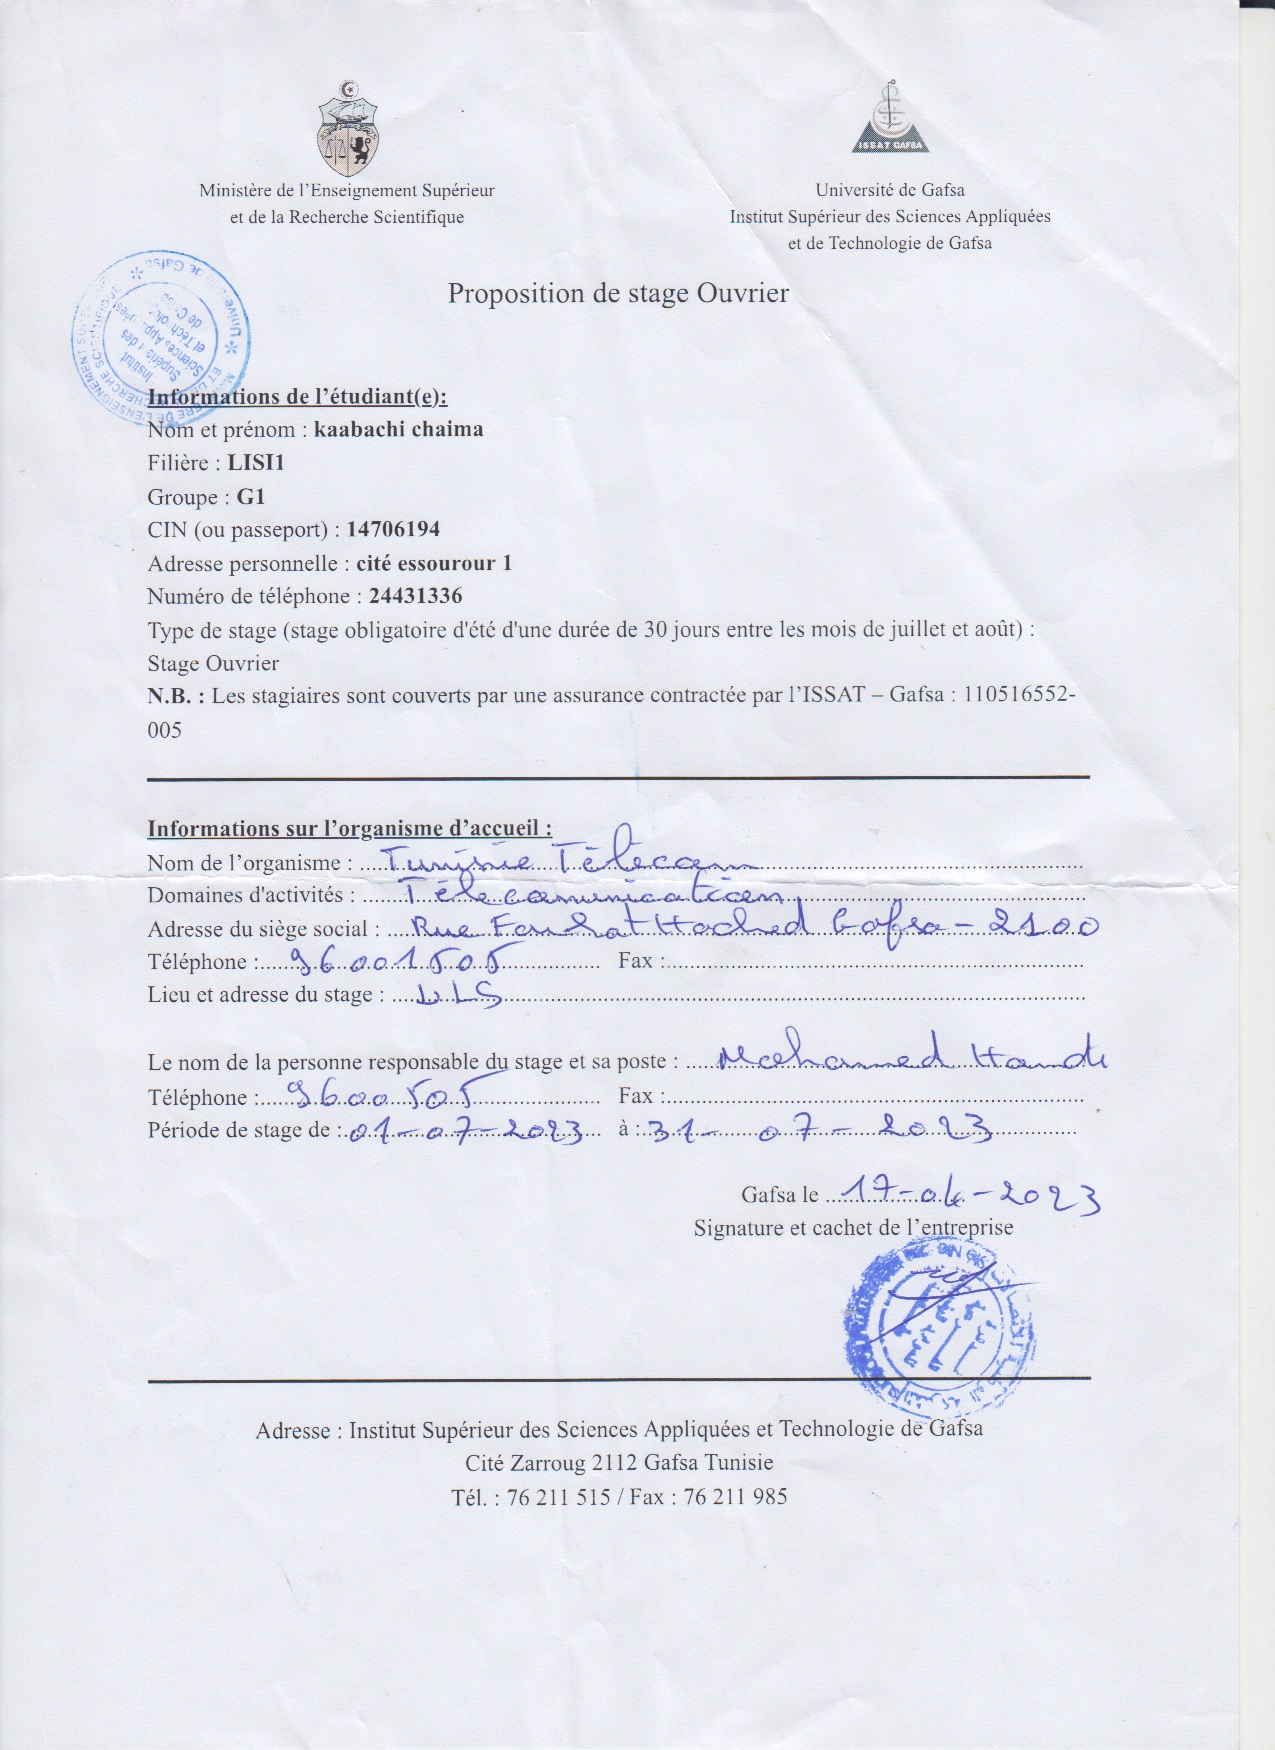 ISSAT GAFSA
Ministère de l'Enseignement Supérieur
et de la Recherche Scientifique
Université de Gafsa
Institut Supérieur des Sciences Appliquées
et de Technologie de Gafsa
Proposition de stage Ouvrier
Institut
Supérieur des
Sciences
de
Université de Gafsa
Informations de l'étudiant(e):
Nom et prénom : kaabachi chaima
Filière : LISI1
Groupe : G1
CIN (ou passeport) : 14706194
Adresse personnelle : cité essourour 1
Numéro de téléphone : 24431336
Type de stage (stage obligatoire d'été d'une durée de 30 jours entre les mois de juillet et août) :
Stage Ouvrier
N.B. : Les stagiaires sont couverts par une assurance contractée par l'ISSAT – Gafsa : 110516552-
005
Informations sur l'organisme d'accueil :
Nom de l'organisme : Tunisie Télécom
Domaines d'activités : Télécomunication
Adresse du siège social : Rue Farhat Hached Gafsa - 2100
Téléphone : 96001505 Fax :
Lieu et adresse du stage :
Le nom de la personne responsable du stage et sa poste : Mohamed
Téléphone : 9600505 Fax :
Période de stage de : 01-07-2023 à : 31-07-2023
Gafsa le 17-04-2023
Signature et cachet de l'entreprise
Adresse : Institut Supérieur des Sciences Appliquées et Technologie de Gafsa
Cité Zarroug 2112 Gafsa Tunisie
Tél. : 76 211 515 / Fax : 76 211 985